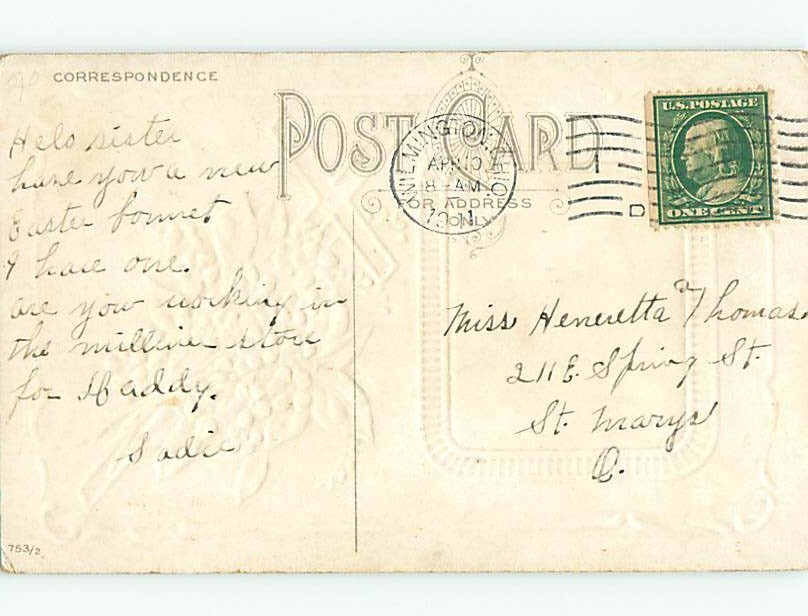 CORRESPONDENCE
Helo sister
have you a new
Easter bonnet
I have one.
are you working in
the milliner store
for Haddy.
Sadie
753/2
POST CARD
FOR ADDRESS
ONLY
WILMINGTON, OHIO
APR 10
8 - AM
1911
D
U.S. POSTAGE
ONE CENT
Miss Heneretta Thomas
211 E. Spring St.
St. Marys
O.